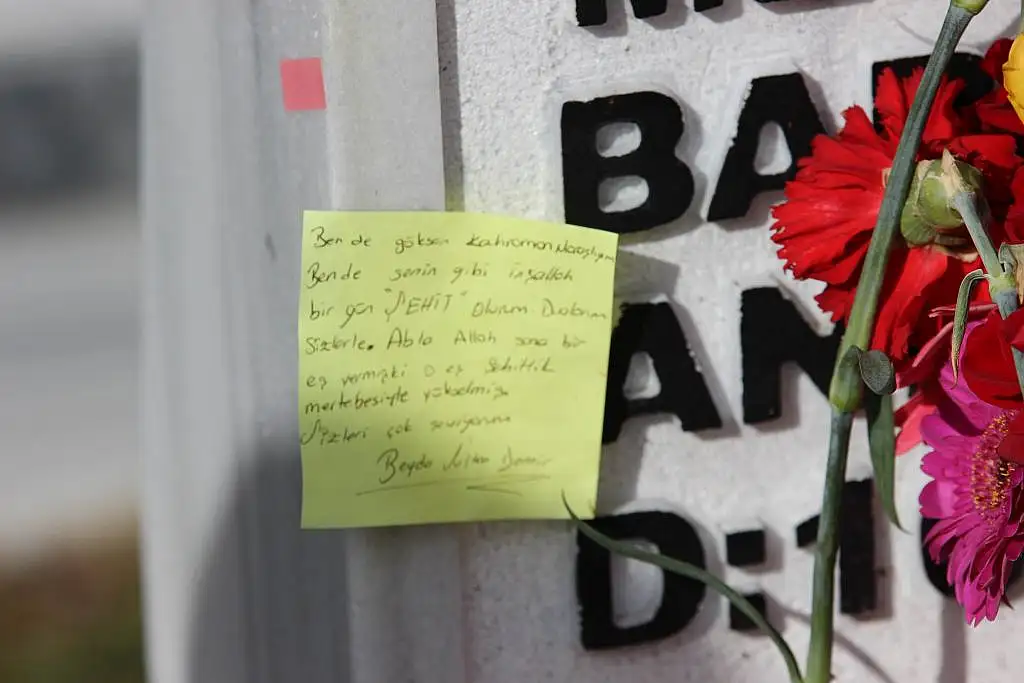 BA
AN
D:1
Ben de göksen Kahraman Maraşlıyım
Bende senin gibi inşallah
bir gün "ŞEHİT" Olurum Dualarım
Sizlerle. Abla Allah sana bir
eş vermişki o eş Şehitlik
mertebesiyle yükselmiş
Sizleri çok seviyorum
Beyda Sultan Demir